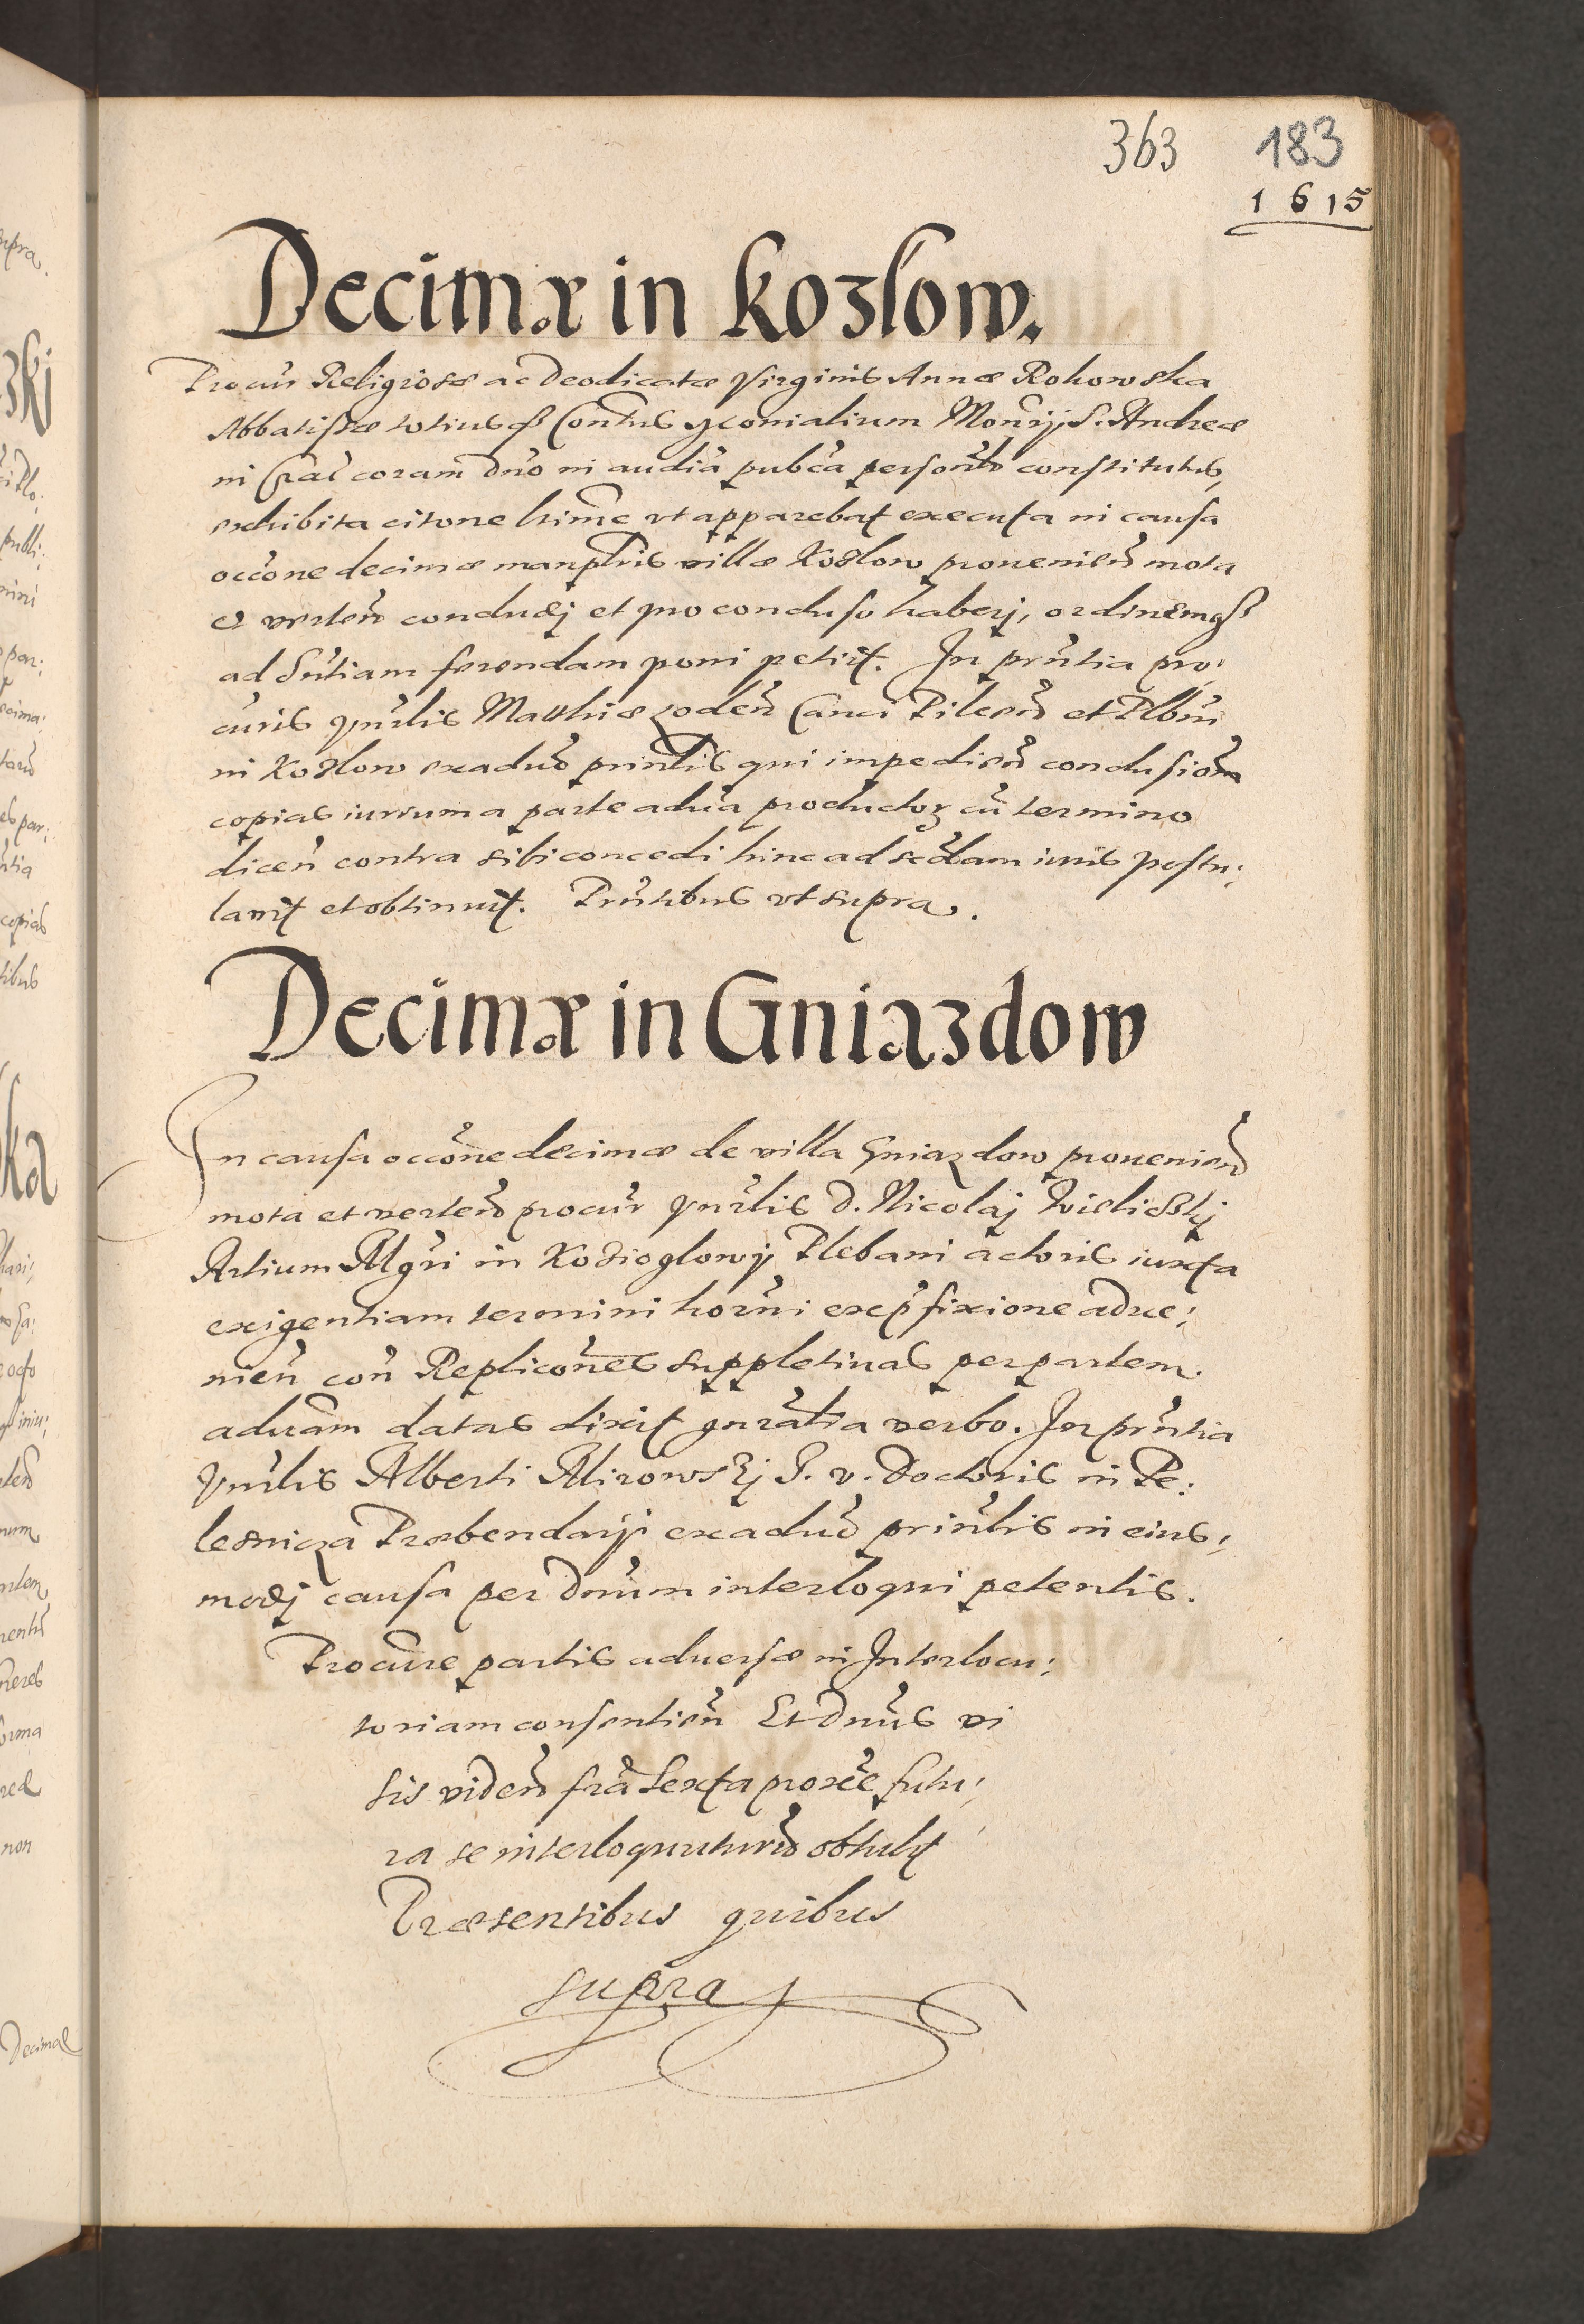 363 183
1615
Decimæ in Kozłow.
Procur Religiosæ ac Deodicatæ Virginis Annæ Rokowska
Abbatissæ totiusq3 Contus Monialium Monrij S. Andreæ
in Crac coram Dno in audia publca personlr constitutus,
exhibita citone hinc ut apparebat executa in causa
occone decimæ manplris villæ Kozlow provenien mota
et verten concludj et pro concluso haberj, ordinemq3
ad Sntiam ferendam poni petiit. In prntia pro:
curis Vnrlis Matthiæ Canci Pilcen et Plbni
in Kozlow ex advo prinlis qui impedien conclusionem
copias iurium a parte adva productor cu termino
dicen contra sibi concedi hinc ad scdam iuris postu:
lavit et obtinuit. Prntibus ut supra.
Decimæ in Gniazdow
In causa occone decimæ de villa Gniazdow provenien
mota et verten procur Vnrlis D. Nicolaj Wieliczkj
Artium Mgri in Kozieglowy Plebani actoris iuxta
exigentiam termini horni ex præfixione adve:
nien con Replicones suppletivas per partem
advam datas dixit gnralia verbo. In prntia
Vnrlis Alberti Mirowskj J. V. Doctoris in Pe:
lesnicza Præbendarij ex advo prinlis in eius:
modj causa per Dnum interloqui petentis.
Procure partis adversæ in Interlocu:
toriam consentien Et Dnus vi
sis viden fria Sexta proxe futu:
ra se interloquuturu obtulit
Præsentibus quibus
supra